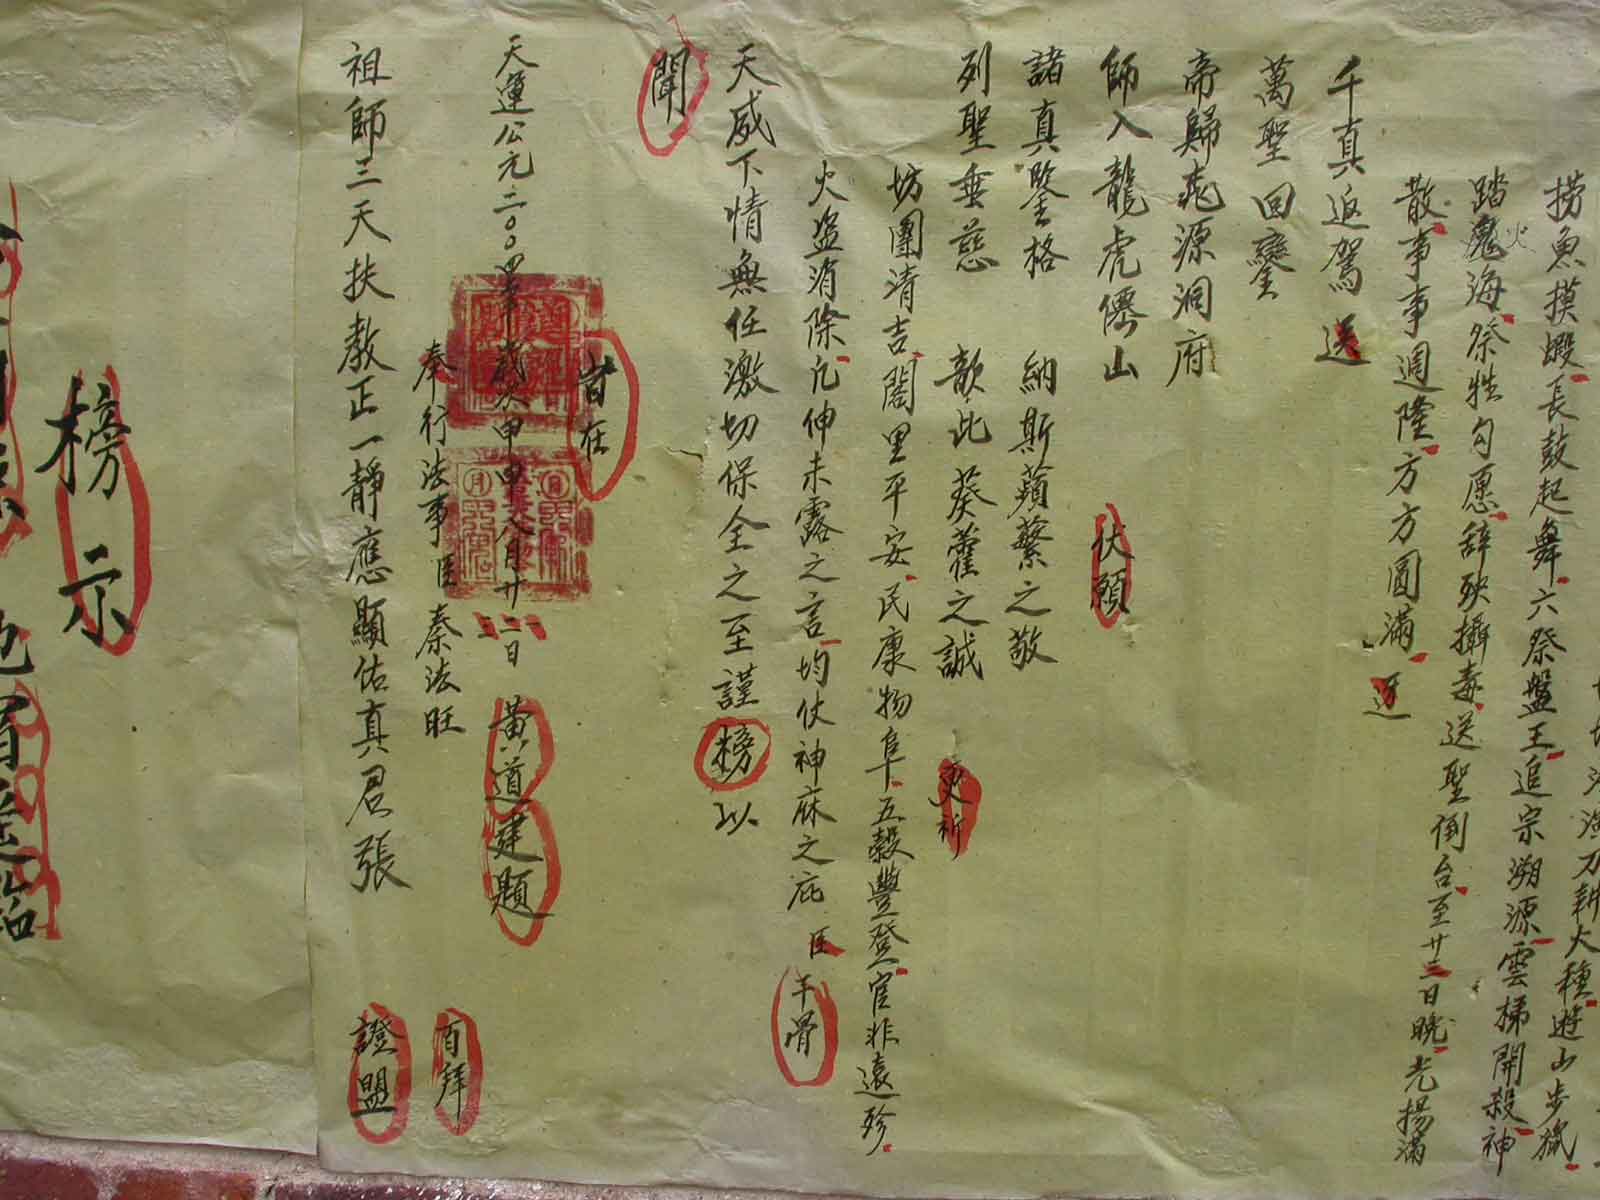 捞魚摸蝦長鼓起舞六祭盤王追宗溯源雲梯開殺神
踏火海祭牲勾愿辞殃攝毒送聖倒台至廿三日晚光揚滿
散事事週隆方方圓滿
千真返駕送
萬聖回鑾
帝歸洞府
師入龍虎僊山
伏願
諸真鑒格 納斯蘋蘩之敬
列聖垂慈 歆此葵藿之誠
更祈
坊團清吉閤里平安民康物阜五穀豐登官非遠殄
火盗消除凡伸未露之言均仗神庥之庇臣
天威下情無任激切保全之至謹榜以
聞
天運公元二00四年歲次甲申八月廿二日 黄道建題
奉行法事臣秦法旺 百拜
祖師三天扶教正一靜應顯佑真君張 證盟
榜示